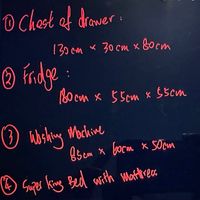 ① Chest of drawer :
130cm x 30cm x 80cm
② Fridge :
180cm x 55cm x 55cm
③ Washing Machine
85cm x 60cm x 50cm
④ Super king Bed with mattress